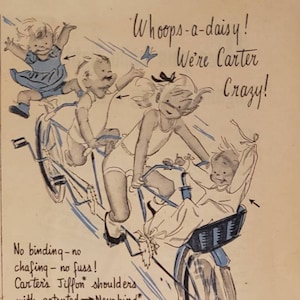 Whoops-a-daisy!
We're Carter
Crazy!
No binding - no
chafing - no fuss!
Carter's Jiffon® shoulders
with patented